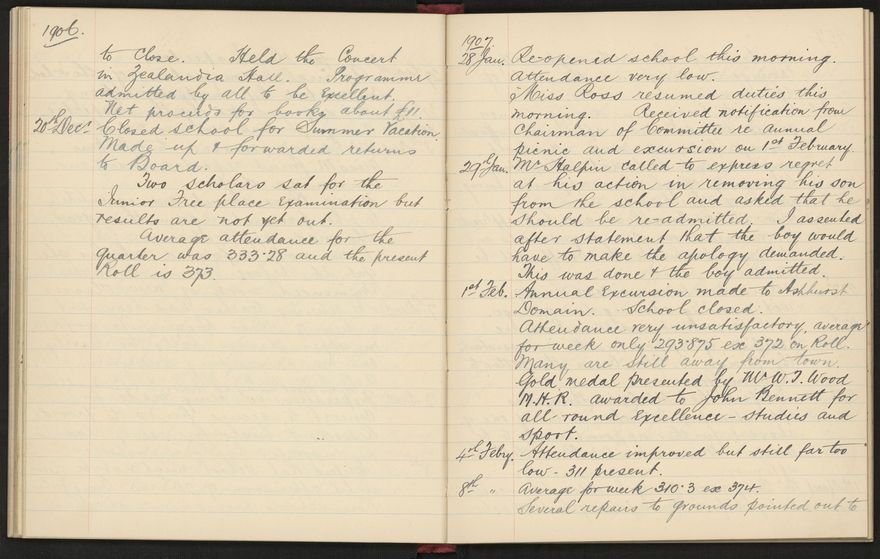 1906.
to close. Held the Concert
in Zealandia Hall. Programme
admitted by all to be Excellent.
Net proceeds for books about £11.
20th Decr. Closed school for Summer Vacation.
Made up & forwarded returns
to Board.
Two scholars sat for the
Junior Free place Examination but
results are not yet out.
Average attendance for the
quarter was 333·28 and the present
Roll is 373.
1907
28 Jan. Re-opened school this morning.
Attendance very low.
Miss Ross resumed duties this
morning. Received notification from
Chairman of Committee re annual
picnic and excursion on 1st February.
29th Jan. Mr Halpin called to express regret
at his action in removing his son
from the school and asked that he
should be re-admitted. I assented
after statement that the boy would
have to make the apology demanded.
This was done & the boy admitted.
1st Feb. Annual Excursion made to Ashhurst
Domain. School closed.
Attendance very unsatisfactory, average
for week only 293·875 ex 372 on Roll.
Many are still away from town.
Gold medal presented by Mr W. T. Wood
M.H.R. awarded to John Bennett for
all round Excellence – studies and
sport.
4th Feby. Attendance improved but still far too
low – 311 present.
8th " Average for week 310·3 ex 374.
Several repairs to grounds pointed out to